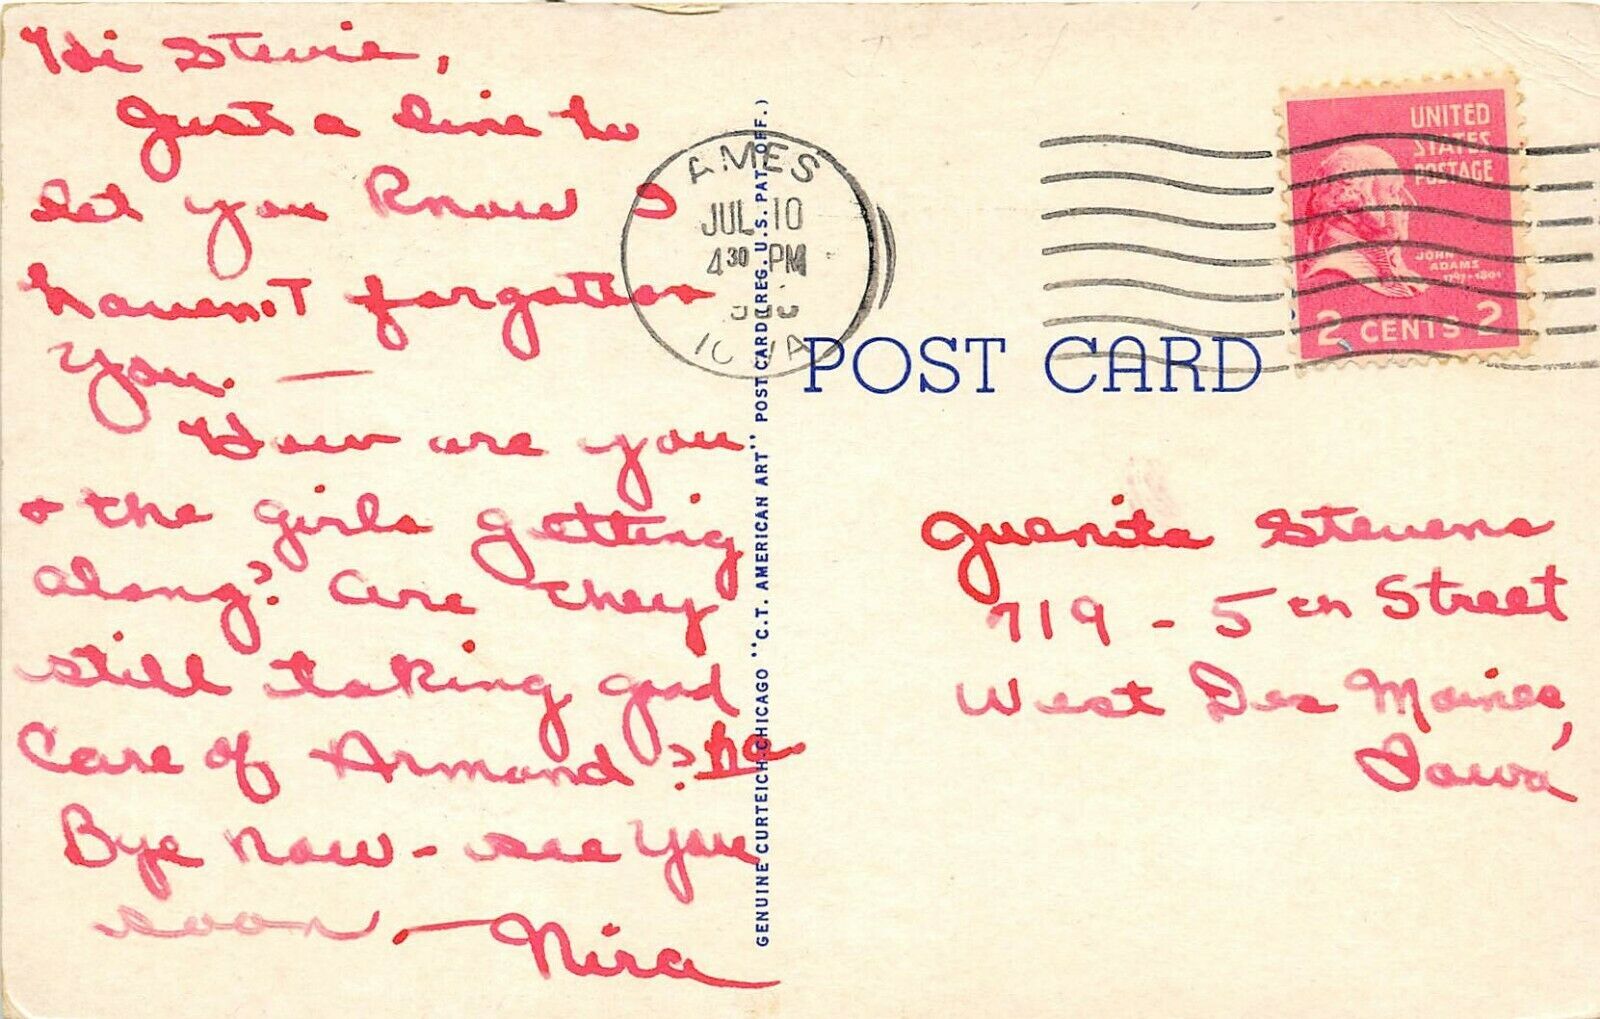 Hi Stevie,
Just a line to
let you know I
haven't forgotten
you. —
How are you
+ the girls getting
along? Are they
still taking good
care of Armand? ha
Bye now - see you
soon. — Nira
GENUINE CURTEICH-CHICAGO "C.T. AMERICAN ART" POST CARD (REG. U.S. PAT. OFF.)
AMES
JUL 10
4 30 PM
IOWA
UNITED
STATES
POSTAGE
JOHN
ADAMS
1797-1801
2 CENTS 2
POST CARD
Juanita Stevens
719 - 5th Street
West Des Moines,
Iowa